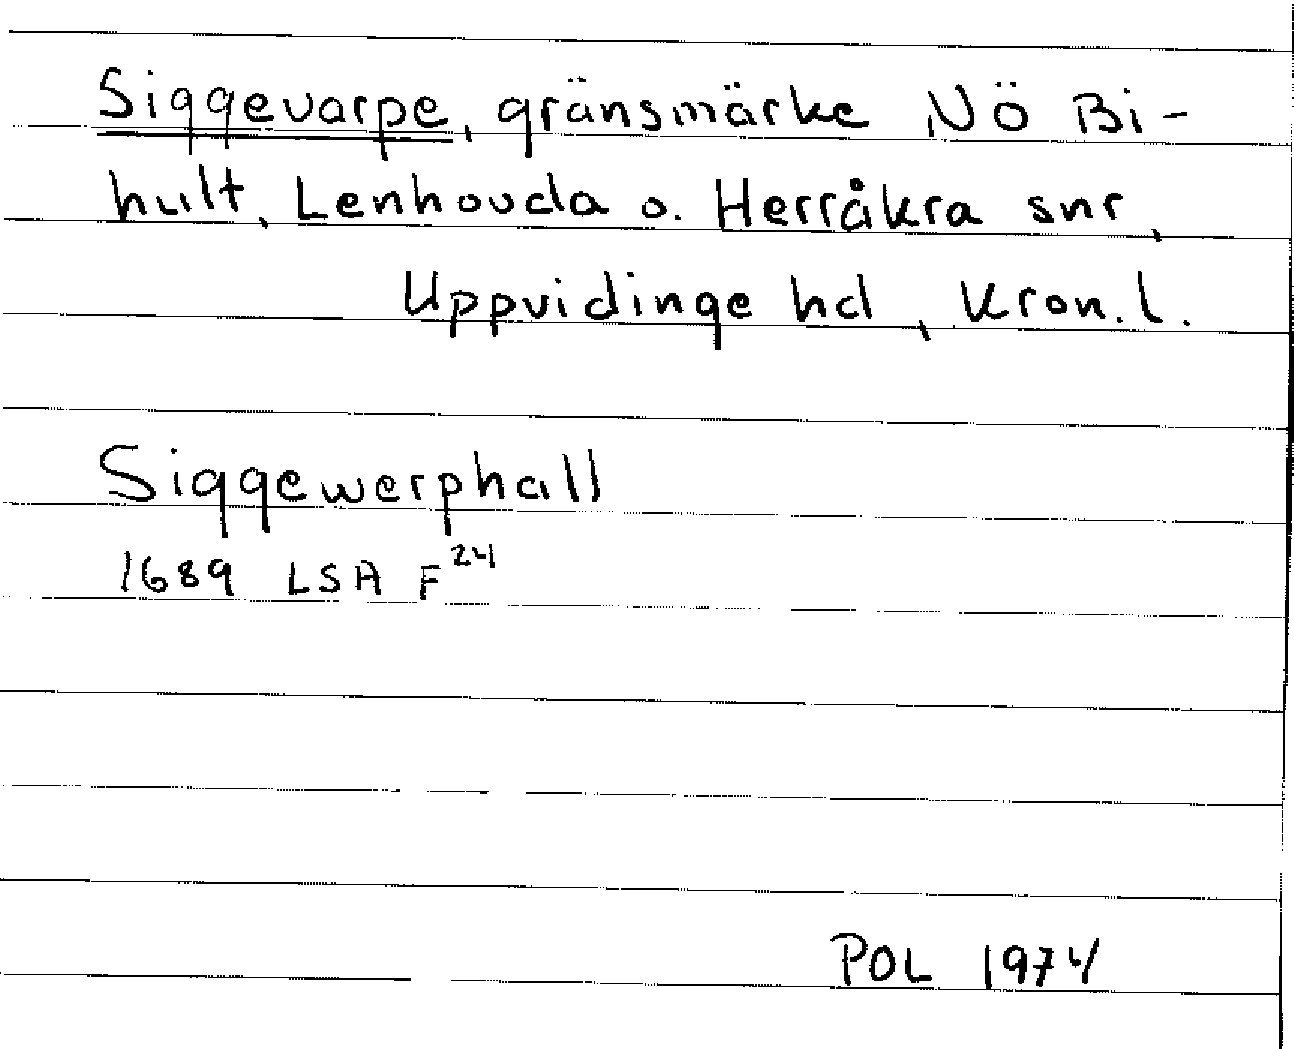 Siggevarpe, gränsmärke NÖ Bi-
hult, Lenhovda o. Herråkra snr,
Uppvidinge hd, Kron.l.
Siggewerphall
1689 LSA F²⁴
POL 1974